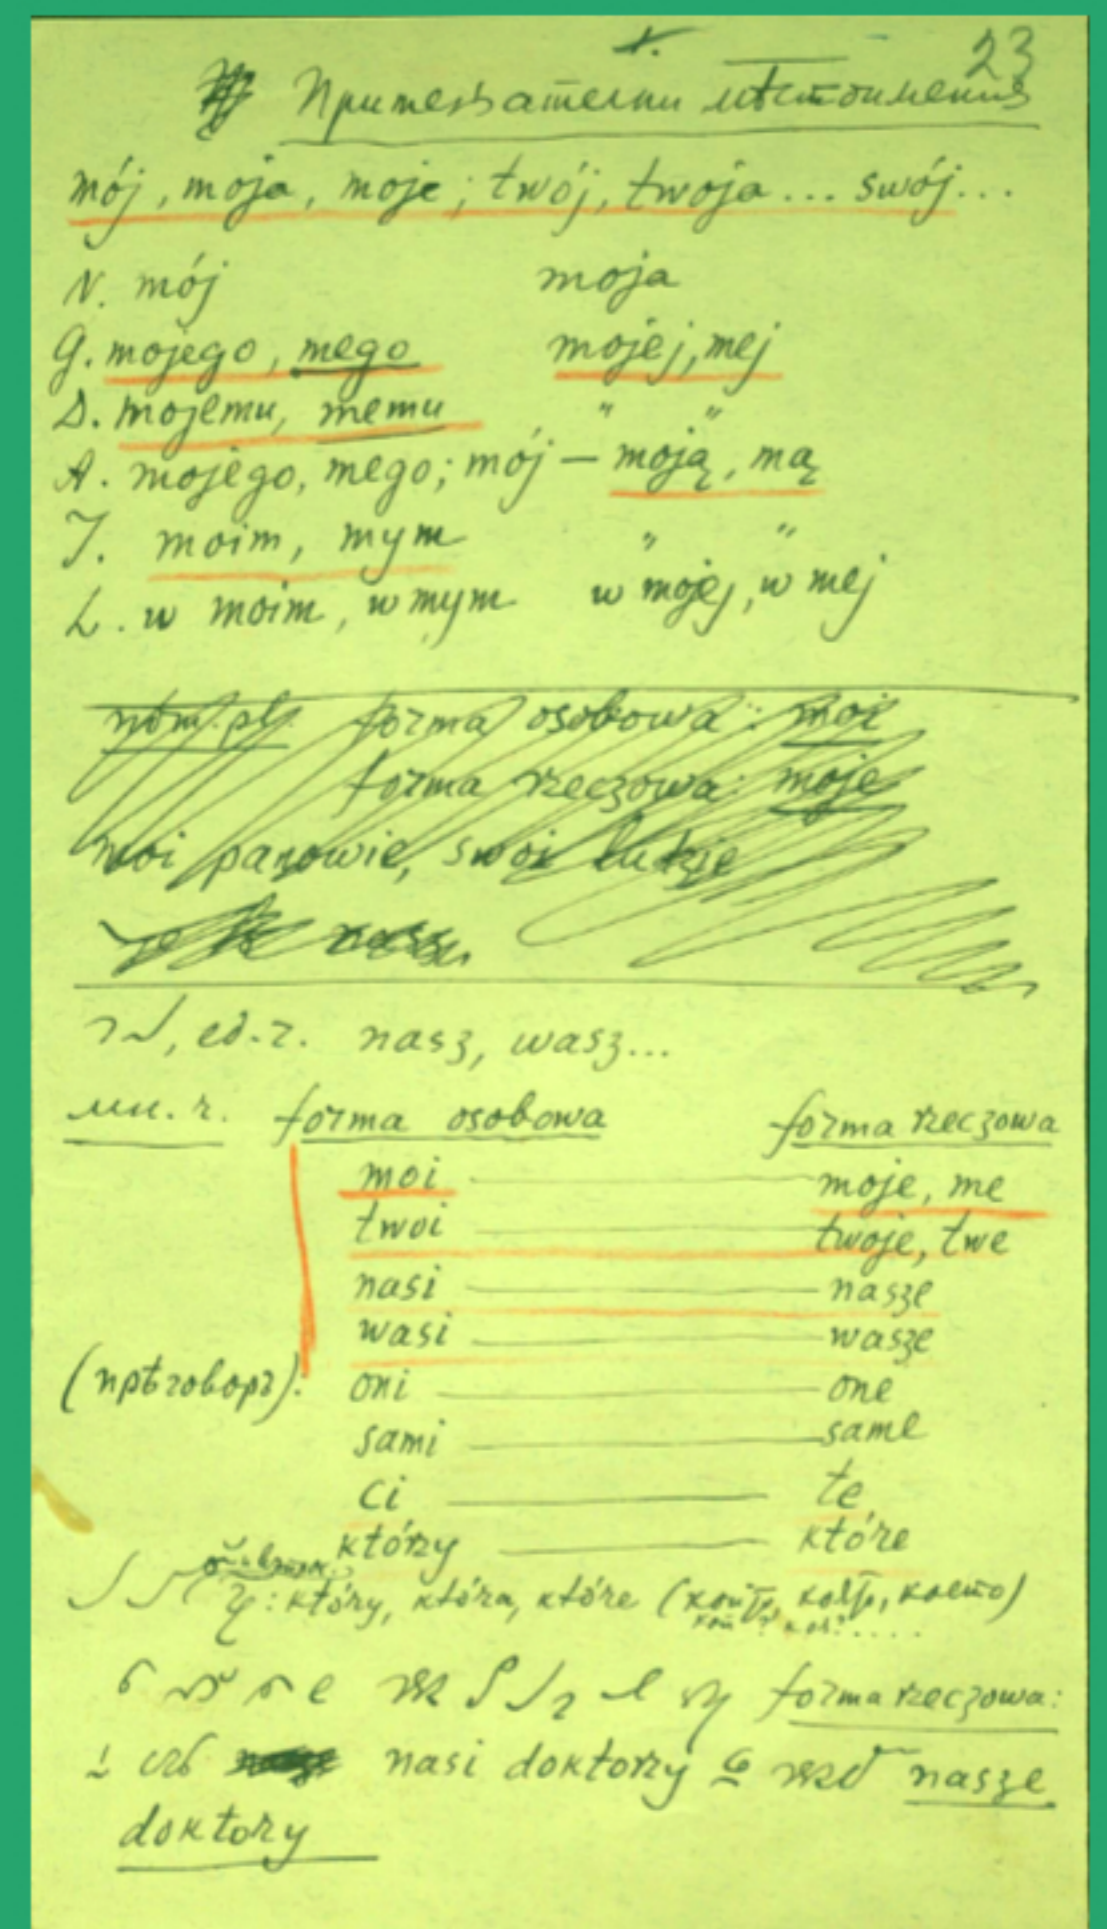 23
Притежателни мѣстоимения
mój, moja, moje; twój, twoja... swój...
N. mój moja
G. mojego, mego mojej, mej
D. mojemu, memu " "
A. mojego, mego; mój — moją, mą
I. moim, mym " "
L. w moim, w mym w mojej, w mej
nom. pl. forma osobowa: moi
forma rzeczowa: moje
moi panowie, swoi ludzie
ед. ч. nasz, wasz...
мн. ч. forma osobowa forma rzeczowa
moi — moje, me
twoi — twoje, twe
nasi — nasze
wasi — wasze
(прѣговоръ). oni — one
sami — same
ci — te
którzy — które
: który, która, które (
forma rzeczowa:
nasi doktorzy nasze
doktory